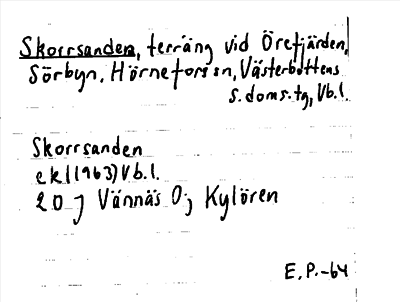 Skorrsanden, terräng vid Örefjärden,
Sörbyn, Hörnefors sn, Västerbottens
s. doms. tg, Vb. l.
Skorrsanden
ek (1963) Vb. l.
20 J Vännäs 0; Kylören
E. P. -64